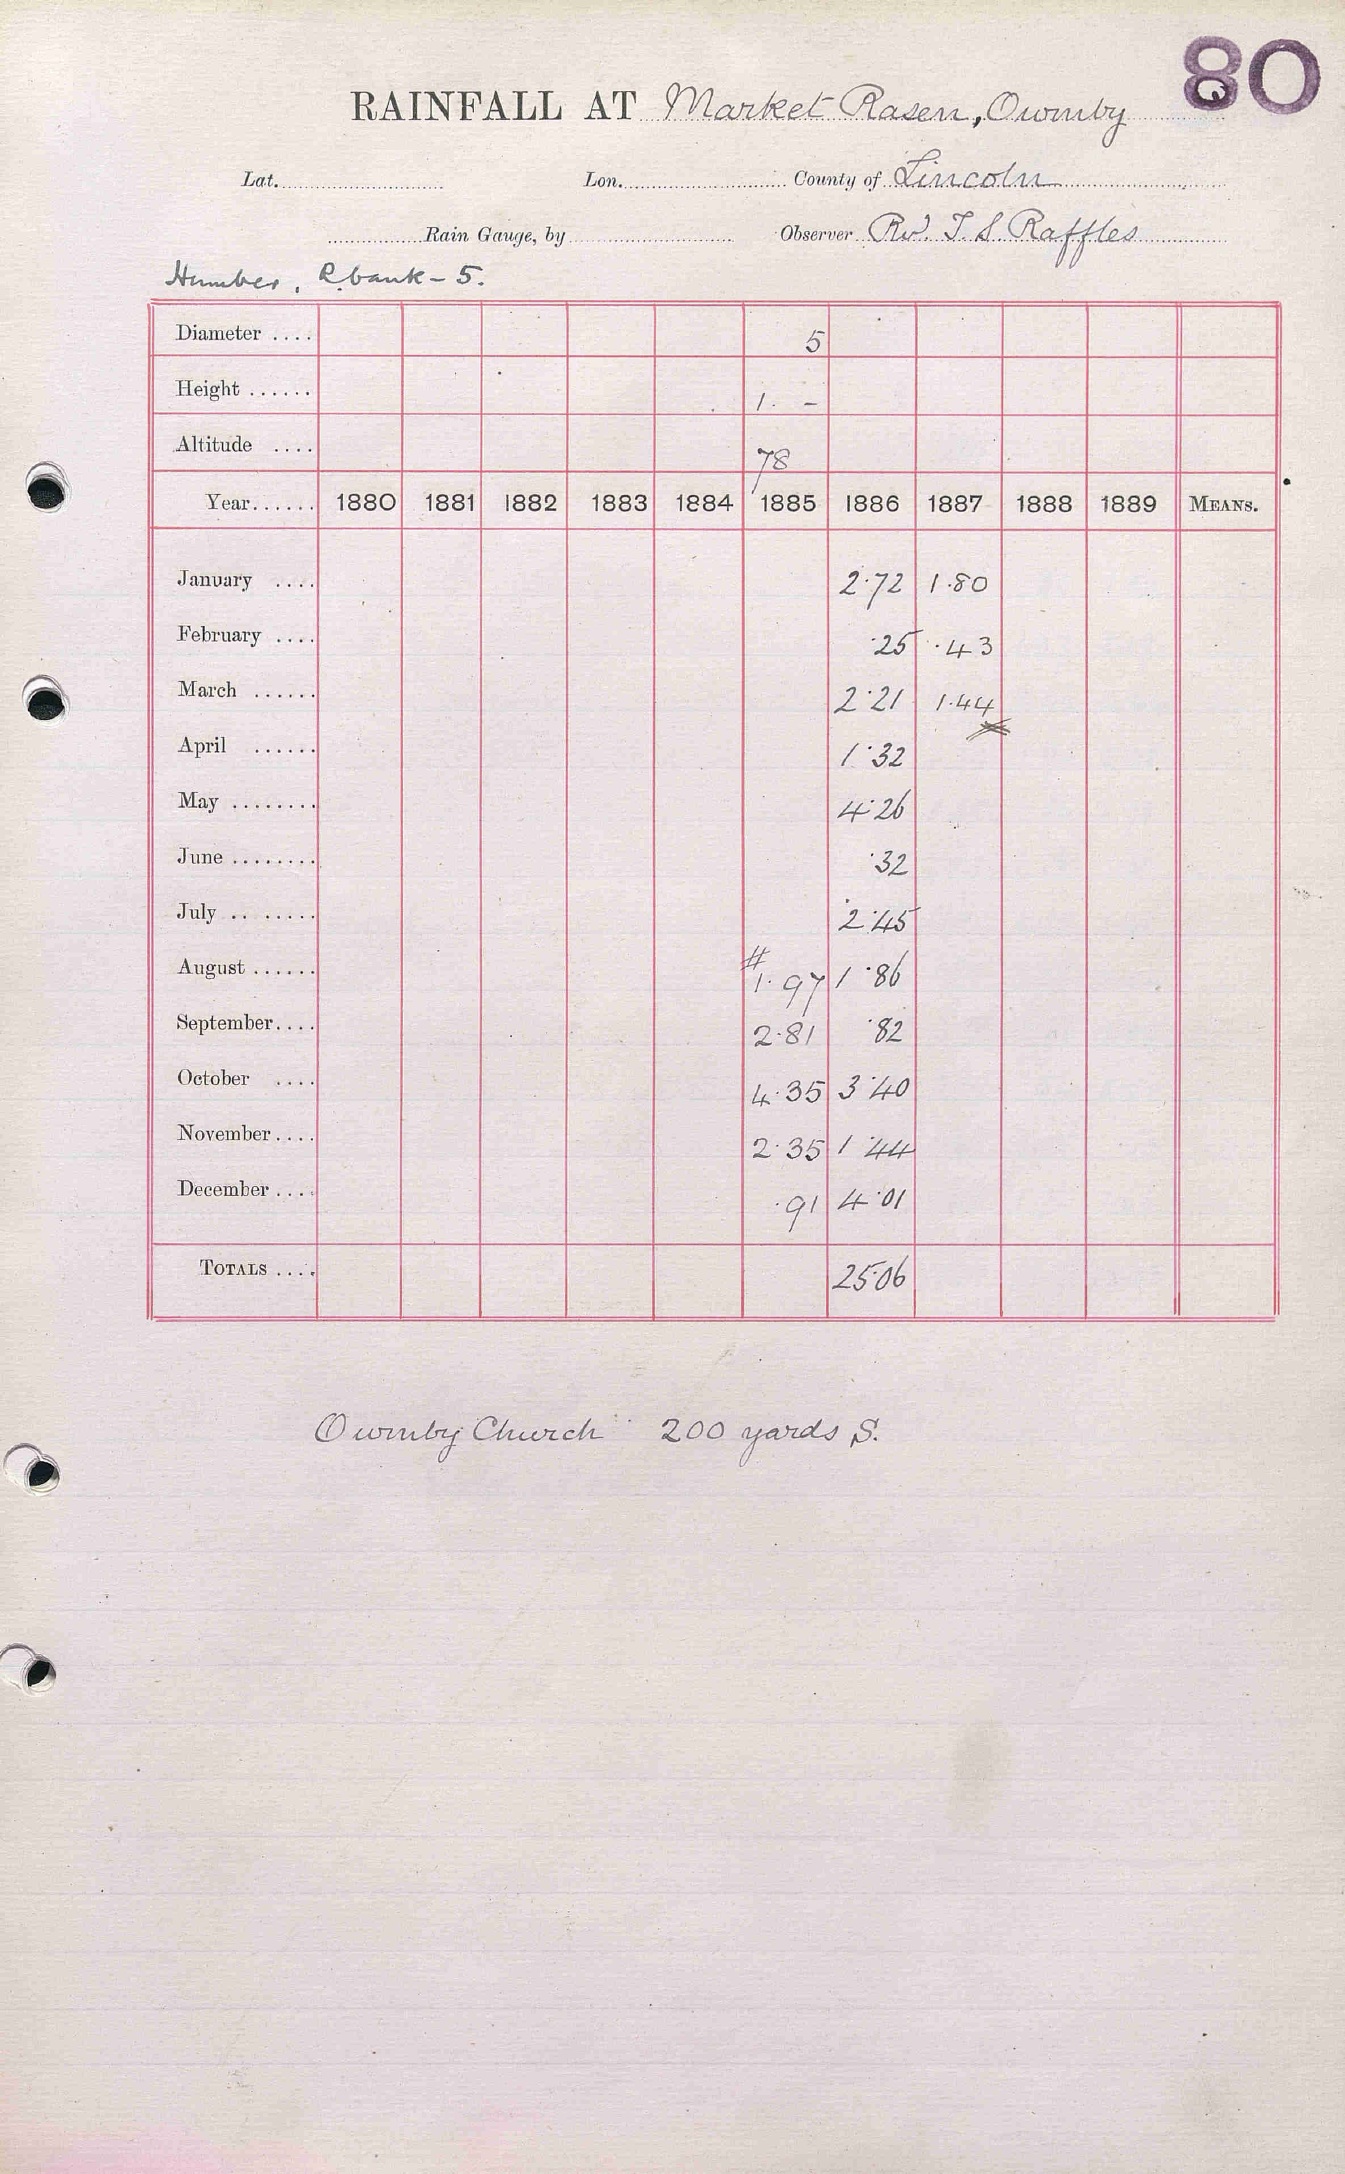 80
RAINFALL AT Market Rasen, Owmby
Lat. Lon. County of Lincoln
Rain Gauge, by Observer Rv. T. S Raffles
Humber, R bank - 5.
Diameter .... 5
Height ...... 1. -
Altitude .... 78
Year...... 1880 1881 1882 1883 1884 1885 1886 1887 1888 1889 MEANS.
January .... 2.72 1.80
February .... .25 .43
March ...... 2.21 1.44
April ...... 1.32
May ........ 4.26
June ........ .32
July .. ...... 2.45
August ...... # 1.97 1.86
September.... 2.81 .82
October .... 4.35 3.40
November.... 2.35 1.44
December.... .91 4.01
TOTALS .... 25.06
Owmby Church 200 yards S.